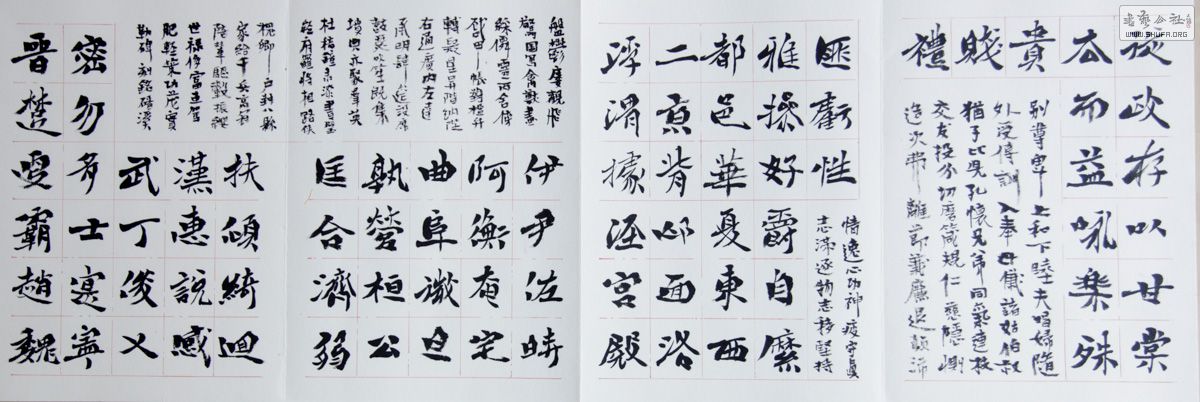 書藝公社
WWW.SHUFA.ORG
從政存以甘棠
去而益詠樂殊
貴賤禮
別尊卑上和下睦夫唱婦隨
外受傅訓入奉母儀諸姑伯叔
猶子比兒孔懷兄弟同氣連枝
交友投分切磨箴規仁慈隱惻
造次弗離節義廉退顛沛
匪虧性
情逸心動神疲守真
志滿逐物意移堅持
雅操好爵自縻
都邑華夏東西
二京背邙面洛
浮渭據涇宮殿
盤鬱樓觀飛
驚圖寫禽獸畫
綵仙靈丙舍傍
啟甲帳對楹升
轉疑星弁階納陛
右通廣內左達
承明肆筵設席
鼓瑟吹笙既集
墳典亦聚羣英
杜稿鍾隸漆書壁
經府羅將相路俠
伊尹佐時
阿衡奄宅
曲阜微旦
孰營桓公
匡合濟弱
槐卿戶封八縣
家給千兵高冠
陪輦驅轂振纓
世祿侈富車駕
肥輕策功茂實
勒碑刻銘磻溪
扶傾綺迴
漢惠說感
武丁俊乂
密勿多士寔寧
晉楚更霸趙魏